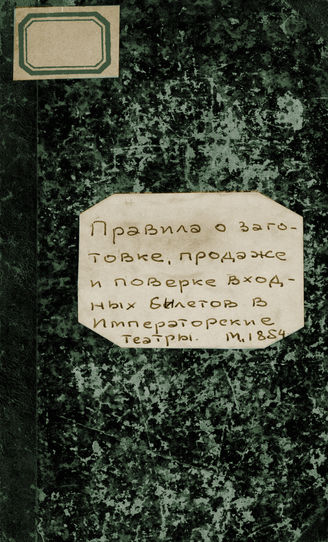 Правила о заго-
товке, продаже
и поверке вход-
ных билетов в
Императорские
театры. М. 1854